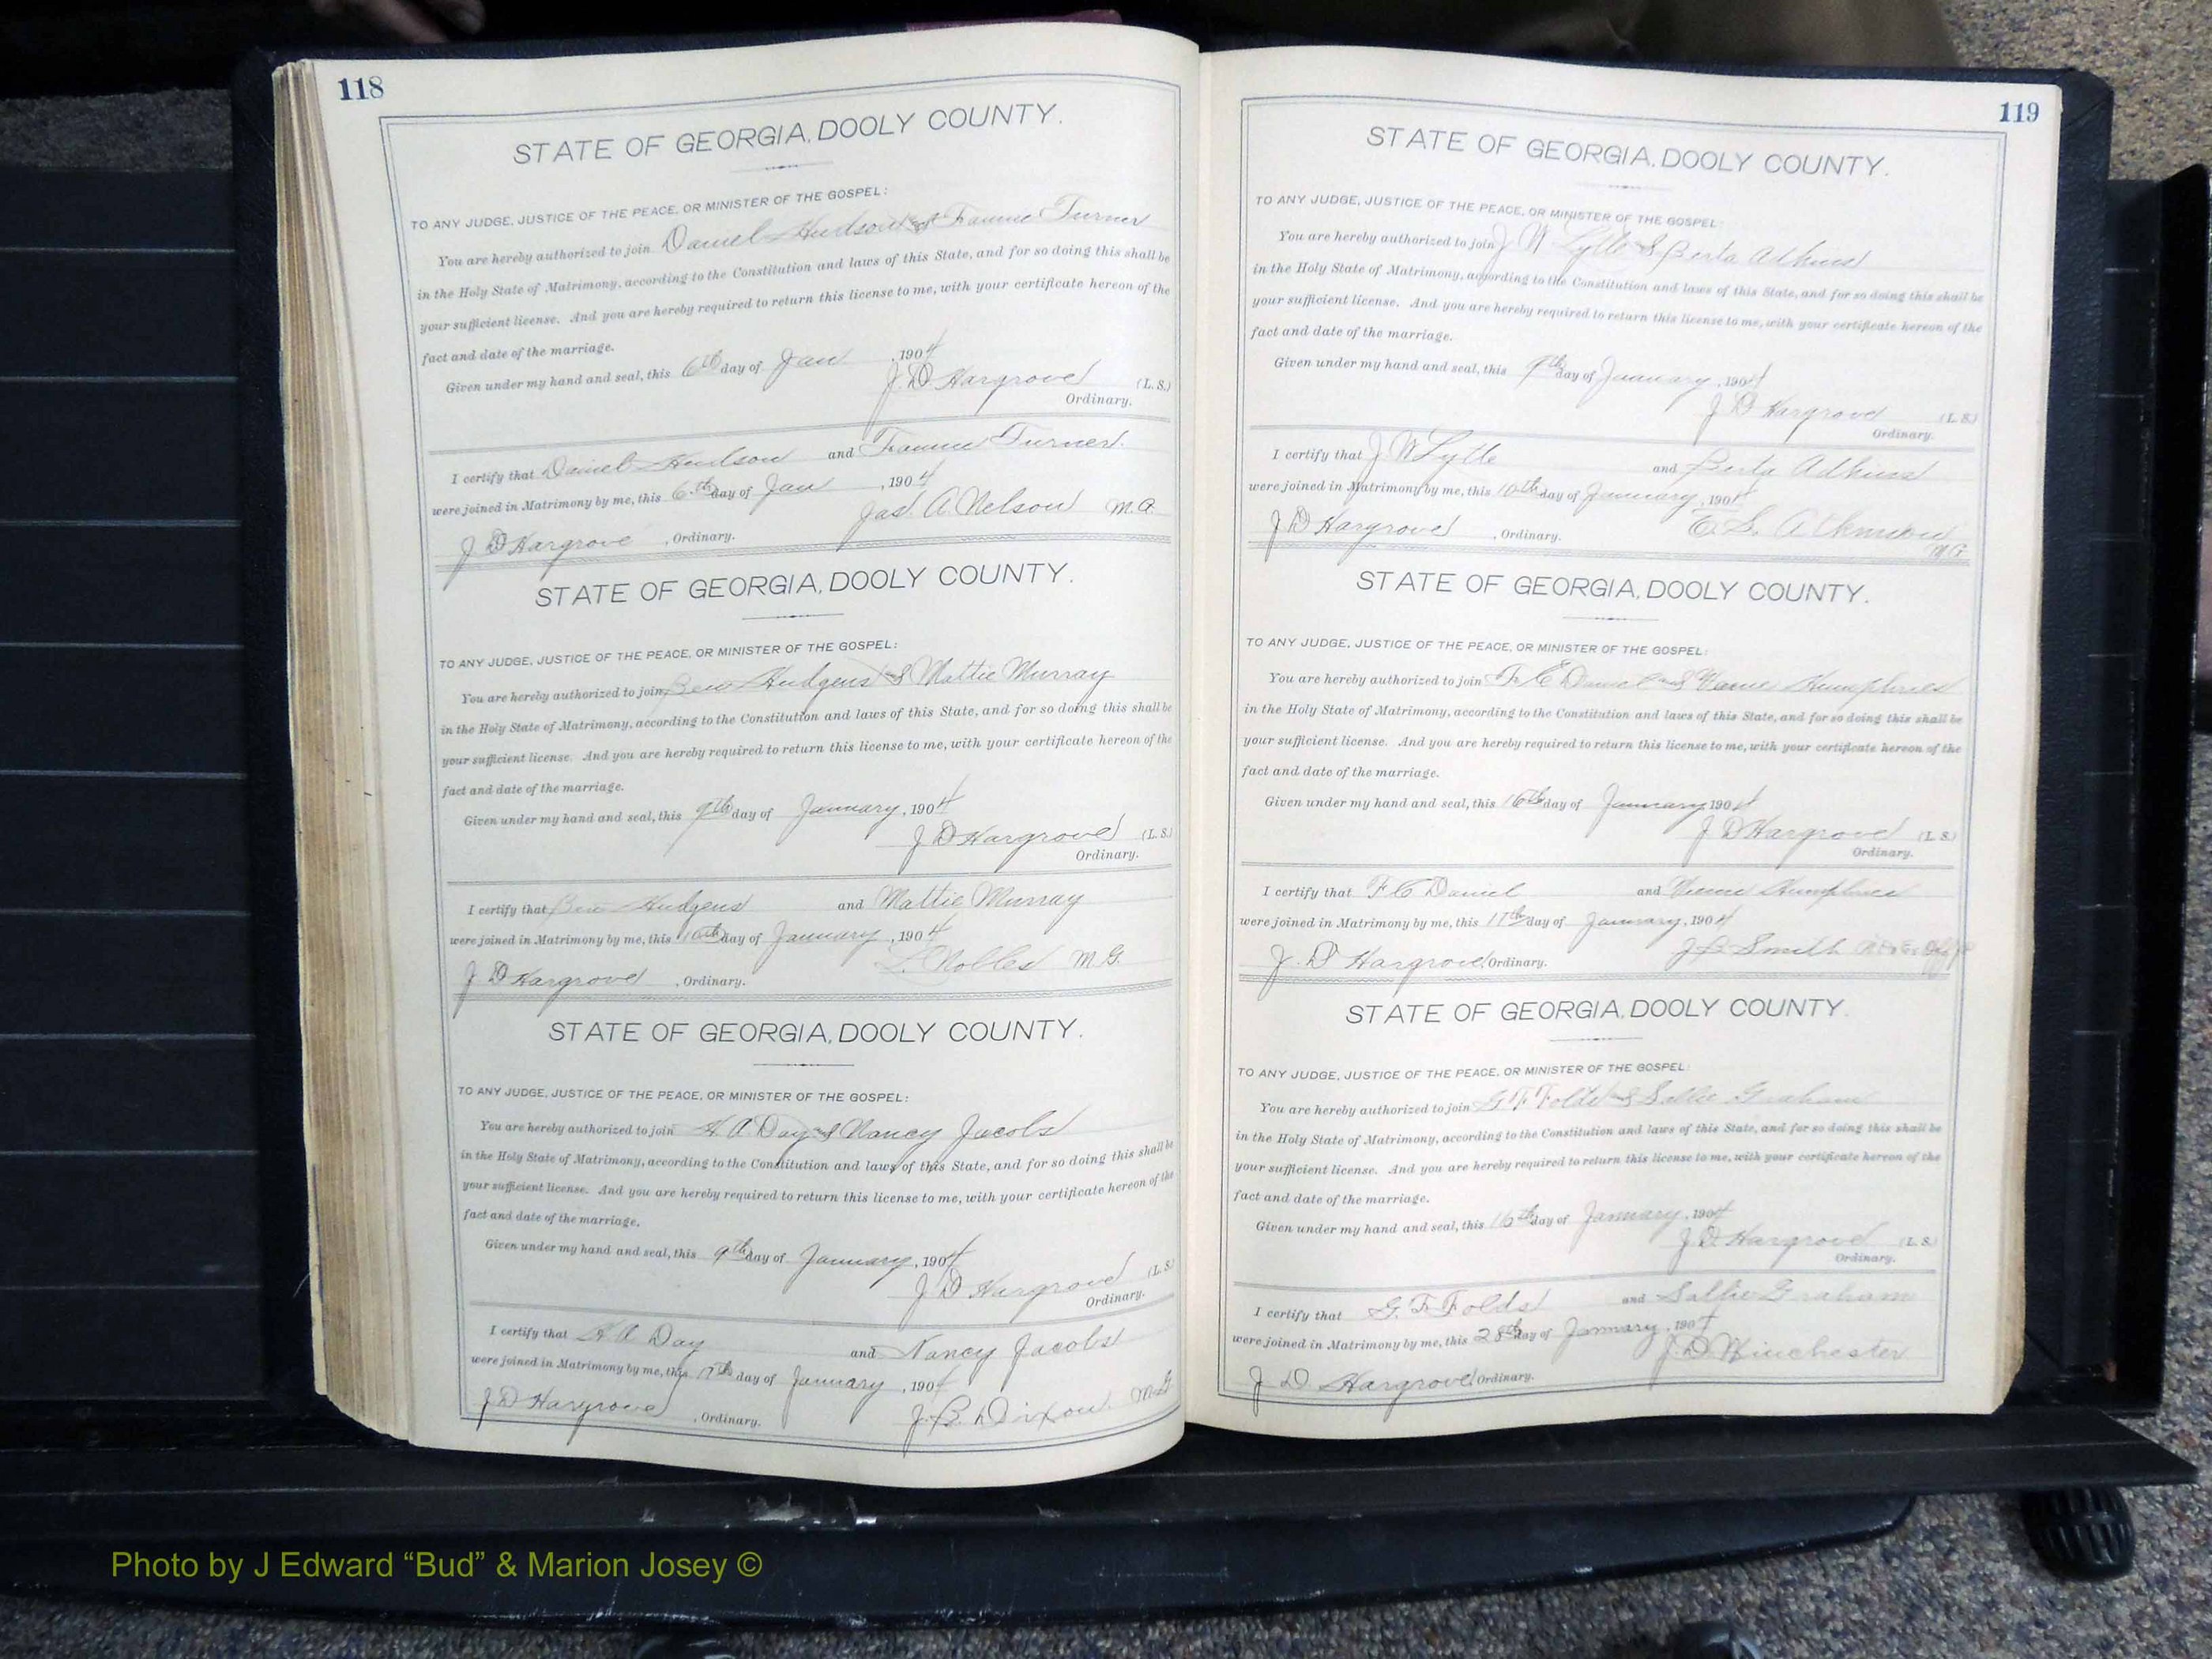 118
STATE OF GEORGIA, DOOLY COUNTY.
TO ANY JUDGE, JUSTICE OF THE PEACE, OR MINISTER OF THE GOSPEL:
You are hereby authorized to join Daniel Hudson and Fannie Turner
in the Holy State of Matrimony, according to the Constitution and laws of this State, and for so doing this shall be
your sufficient license. And you are hereby required to return this license to me, with your certificate hereon of the
fact and date of the marriage.
Given under my hand and seal, this 6th day of Jan , 1904
J. D. Hargrove (L. S.)
Ordinary.
I certify that Daniel Hudson and Fannie Turner.
were joined in Matrimony by me, this 6th day of Jan , 1904
Jas. A. Nelson M.G.
J D Hargrove , Ordinary.
STATE OF GEORGIA, DOOLY COUNTY.
TO ANY JUDGE, JUSTICE OF THE PEACE, OR MINISTER OF THE GOSPEL:
You are hereby authorized to join Ben Hudgens & Mattie Murray
in the Holy State of Matrimony, according to the Constitution and laws of this State, and for so doing this shall be
your sufficient license. And you are hereby required to return this license to me, with your certificate hereon of the
fact and date of the marriage.
Given under my hand and seal, this 9th day of January , 1904
J D Hargrove (L. S.)
Ordinary.
I certify that Ben Hudgens and Mattie Murray
were joined in Matrimony by me, this 10th day of January , 1904
Nobles M. G.
J D Hargrove , Ordinary.
STATE OF GEORGIA, DOOLY COUNTY.
TO ANY JUDGE, JUSTICE OF THE PEACE, OR MINISTER OF THE GOSPEL:
You are hereby authorized to join A Day & Nancy Jacobs
in the Holy State of Matrimony, according to the Constitution and laws of this State, and for so doing this shall be
your sufficient license. And you are hereby required to return this license to me, with your certificate hereon of the
fact and date of the marriage.
Given under my hand and seal, this 9th day of January , 1904
J D Hargrove (L. S.)
Ordinary.
I certify that A Day and Nancy Jacobs
were joined in Matrimony by me, this 17th day of January , 1904
J. B. Dixon M G
J D Hargrove , Ordinary.
119
STATE OF GEORGIA, DOOLY COUNTY.
TO ANY JUDGE, JUSTICE OF THE PEACE, OR MINISTER OF THE GOSPEL:
You are hereby authorized to join J W Lytle & Berta Adkins
in the Holy State of Matrimony, according to the Constitution and laws of this State, and for so doing this shall be
your sufficient license. And you are hereby required to return this license to me, with your certificate hereon of the
fact and date of the marriage.
Given under my hand and seal, this 9th day of January , 1904
J D Hargrove (L. S.)
Ordinary.
I certify that J. W Lytle and Berta Adkins
were joined in Matrimony by me, this 10th day of January , 1904
E. S. Atkinson
M G
J D Hargrove , Ordinary.
STATE OF GEORGIA, DOOLY COUNTY.
TO ANY JUDGE, JUSTICE OF THE PEACE, OR MINISTER OF THE GOSPEL:
You are hereby authorized to join F C Daniel and Humphries
in the Holy State of Matrimony, according to the Constitution and laws of this State, and for so doing this shall be
your sufficient license. And you are hereby required to return this license to me, with your certificate hereon of the
fact and date of the marriage.
Given under my hand and seal, this 16th day of January 1904
J D Hargrove (L. S.)
Ordinary.
I certify that F C Daniel and Humphries
were joined in Matrimony by me, this 17th day of January , 1904
J B Smith
J. D Hargrove , Ordinary.
STATE OF GEORGIA, DOOLY COUNTY.
TO ANY JUDGE, JUSTICE OF THE PEACE, OR MINISTER OF THE GOSPEL:
You are hereby authorized to join G F Folds & Sallie Graham
in the Holy State of Matrimony, according to the Constitution and laws of this State, and for so doing this shall be
your sufficient license. And you are hereby required to return this license to me, with your certificate hereon of the
fact and date of the marriage.
Given under my hand and seal, this 16th day of January , 1904
J. D. Hargrove (L. S.)
Ordinary.
I certify that G. F. Folds and Sallie Graham
were joined in Matrimony by me, this 28th day of January , 1904
J. D. Winchester
J D Hargrove , Ordinary.
Photo by J Edward “Bud” & Marion Josey ©